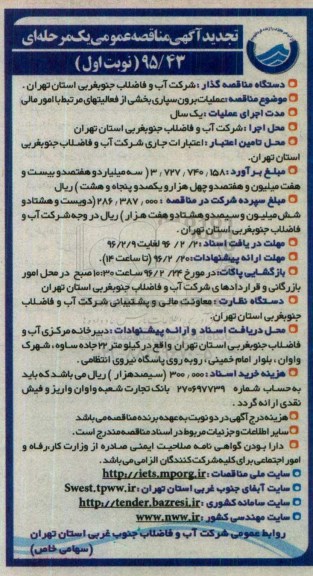 تجدید آگهی مناقصه عمومی یک مرحله‌ای
۹۵/۴۳ (نوبت اول)
دستگاه مناقصه گذار: شرکت آب و فاضلاب جنوبغربی استان تهران.
موضوع مناقصه: عملیات برون سپاری بخشی از فعالیتهای مرتبط با امور مالی
مدت اجرای عملیات: یک سال
محل اجرا: شرکت آب و فاضلاب جنوبغربی استان تهران
محل تامین اعتبار: اعتبارات جاری شرکت آب و فاضلاب جنوبغربی
استان تهران.
مبلغ برآورد: ۳٫۷۲۷٫۷۴۰٫۱۵۸ (سه میلیارد و هفتصد و بیست و
هفت میلیون و هفتصد و چهل هزار و یکصد و پنجاه و هشت) ریال
مبلغ سپرده شرکت در مناقصه: ۲۸۶٫۳۸۷٫۰۰۰ (دویست و هشتاد و
شش میلیون و سیصد و هشتاد و هفت هزار) ریال در وجه شرکت آب و
فاضلاب جنوبغربی استان تهران.
مهلت دریافت اسناد: ۹۶/۲/۲ لغایت ۹۶/۲/۹
مهلت ارائه پیشنهادات: ۹۶/۲/۲۰ (تا ساعت ۱۴).
بازگشایی پاکات: در مورخ ۹۶/۲/۲۴ ساعت ۱۰:۳۰ صبح در محل امور
بازرگانی و قراردادهای شرکت آب و فاضلاب جنوبغربی استان تهران
دستگاه نظارت: معاونت مالی و پشتیبانی شرکت آب و فاضلاب
جنوبغربی استان تهران.
محل دریافت اسناد و ارائه پیشنهادات: دبیرخانه مرکزی آب و
فاضلاب جنوبغربی استان تهران واقع در کیلومتر ۲۲ جاده ساوه، شهرک
واوان، بلوار امام خمینی، روبه روی پاسگاه نیروی انتظامی.
هزینه خرید اسناد: ۳۰۰٫۰۰۰ (سیصد هزار) ریال می باشد که باید
به حساب شماره ۲۷۰۶۹۷۷۳۹ بانک تجارت شعبه واوان واریز و فیش
نقدی ارائه گردد.
هزینه درج آگهی در دو نوبت به عهده برنده مناقصه می باشد
سایر اطلاعات و جزئیات مربوط در اسناد مناقصه مندرج است.
دارا بودن گواهی نامه صلاحیت ایمنی صادره از وزارت کار، رفاه و
امور اجتماعی برای کلیه شرکت کنندگان الزامی می باشد.
سایت ملی مناقصات: http://iets.mporg.ir
سایت آبفای جنوب غربی استان تهران: Swest.tpww.ir
سایت سامانه کشوری: http://tender.bazresi.ir
سایت مهندسی کشور: www.nww.ir
روابط عمومی شرکت آب و فاضلاب جنوب غربی استان تهران
(سهامی خاص)